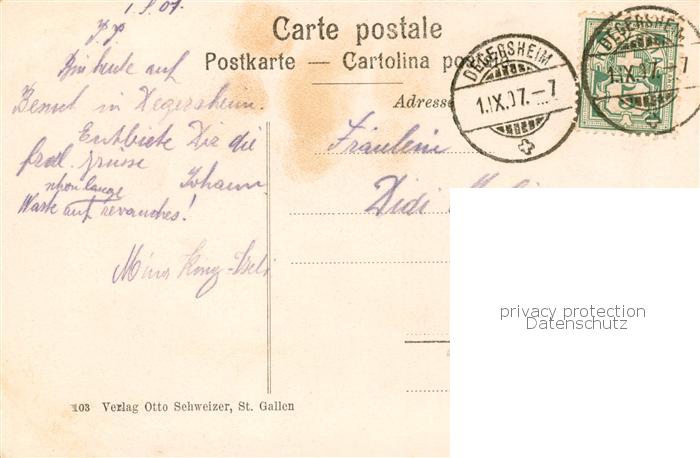 1.9.07.
Carte postale
Postkarte — Cartolina po
Adresse
DEGERSHEIM
1.IX.07.–7
DEGERSHEIM
1.IX.07.–7
P.P.
Bin heute auf
Besuch in Degersheim.
Entbiete Dir die
frdl. Grüsse
Johann
schon lange
Warte auf revanches!
Fräulein
Didi
privacy protection
Datenschutz
103 Verlag Otto Schweizer, St. Gallen